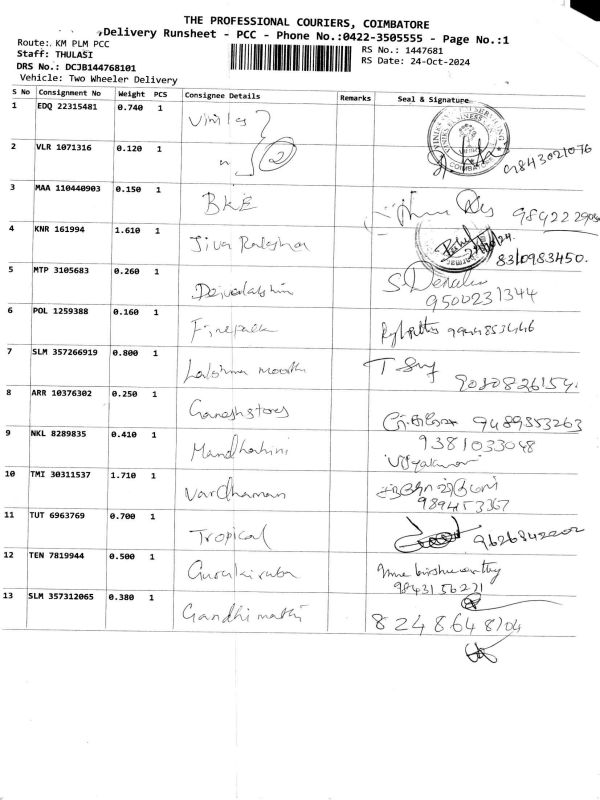 THE PROFESSIONAL COURIERS, COIMBATORE
Delivery Runsheet - PCC - Phone No.:0422-3505555 - Page No.:1
Route: KM PLM PCC
RS No.: 1447681
Staff: THULASI
RS Date: 24-Oct-2024
DRS No.: DCJB144768101
Vehicle: Two Wheeler Delivery
S No Consignment No Weight PCS Consignee Details Remarks Seal & Signature
1 EDQ 22315481 0.740 1
2 VLR 1071316 0.120 1 " 2 9843021076
3 MAA 110440903 0.150 1 BKE
4 KNR 161994 1.610 1 8310983450.
5 MTP 3105683 0.260 1 9500231344
6 POL 1259388 0.160 1
7 SLM 357266919 0.800 1 Lakshma moorthi
8 ARR 10376302 0.250 1 Ganeshstores 9489353263
9 NKL 8289835 0.410 1 Mandhahini 9381033048
"Vijayakumar"
10 TMI 30311537 1.710 1 Vardhaman
9894153367
11 TUT 6963769 0.700 1 Tropical
12 TEN 7819944 0.500 1 Gurukiruba
9843156271
13 SLM 357312065 0.380 1 Gandhimathi 8248648704